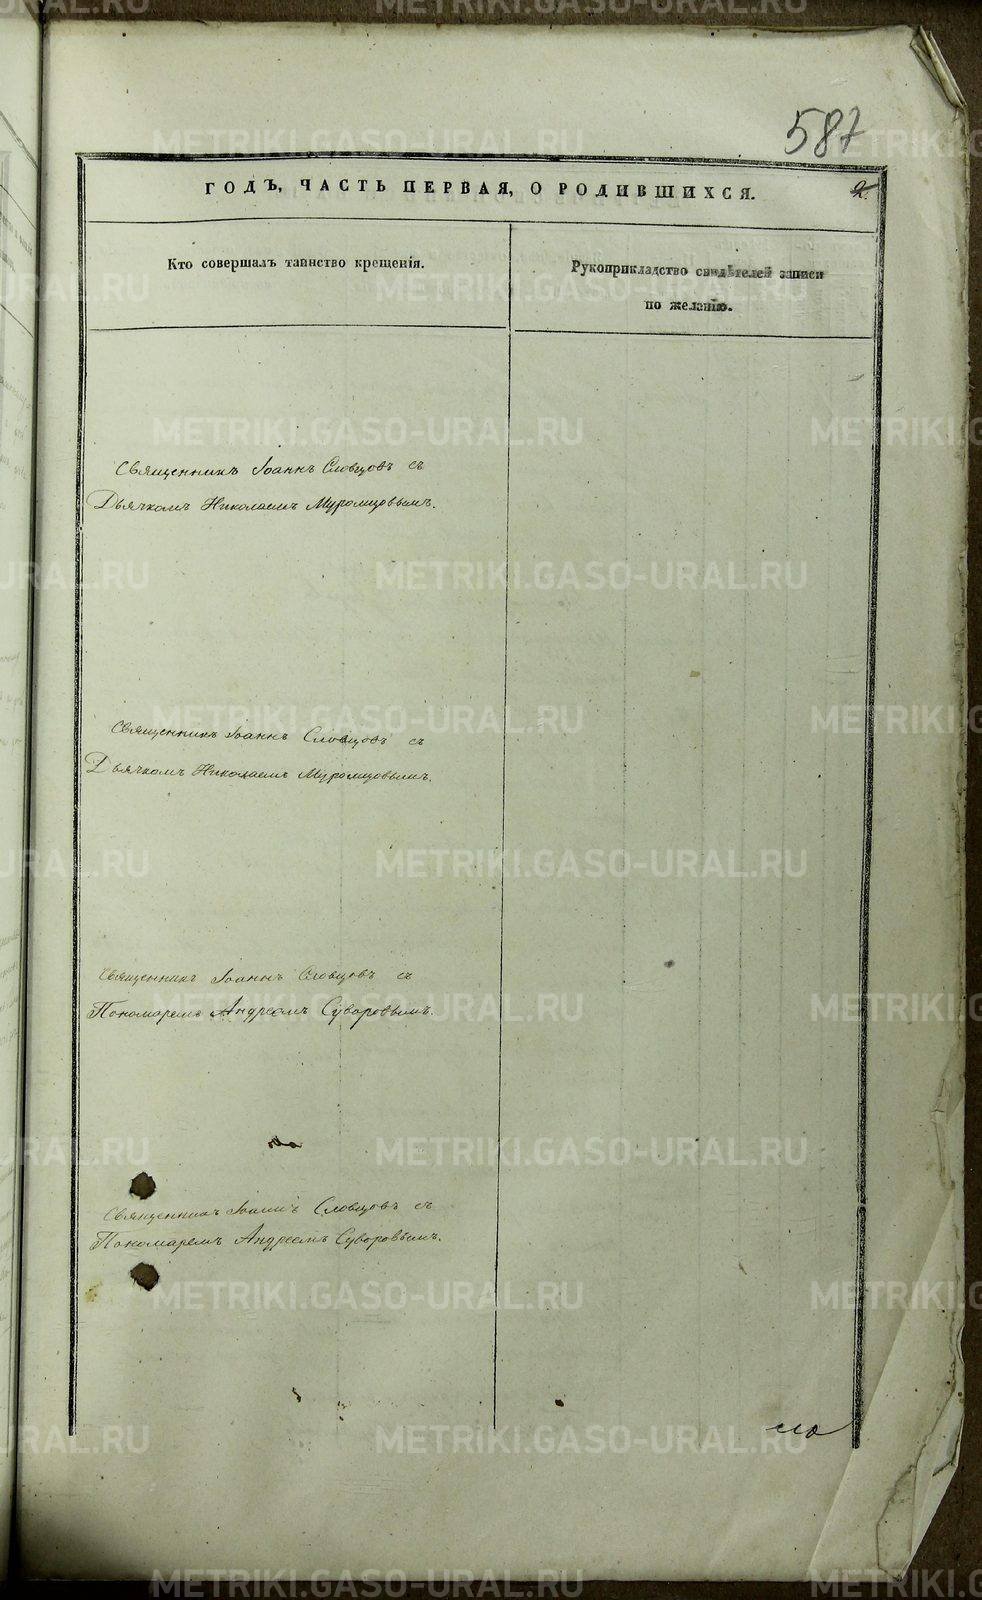 587
ГОДЪ, ЧАСТЬ ПЕРВАЯ, О РОДИВШИХСЯ.
Кто совершалъ таинство крещенія.
Рукоприкладство свидѣтелей записи
по желанію.
Священникъ Іоаннъ Словцовъ съ
Дьячкомъ Николаемъ Муромцовымъ.
Священникъ Іоаннъ Словцовъ съ
Дьячкомъ Николаемъ Муромцовымъ.
Священникъ Іоаннъ Словцовъ съ
Пономаремъ Андреемъ Суворовымъ.
Священникъ Іоаннъ Словцовъ съ
Пономаремъ Андреемъ Суворовымъ.
METRIKI.GASO-URAL.RU